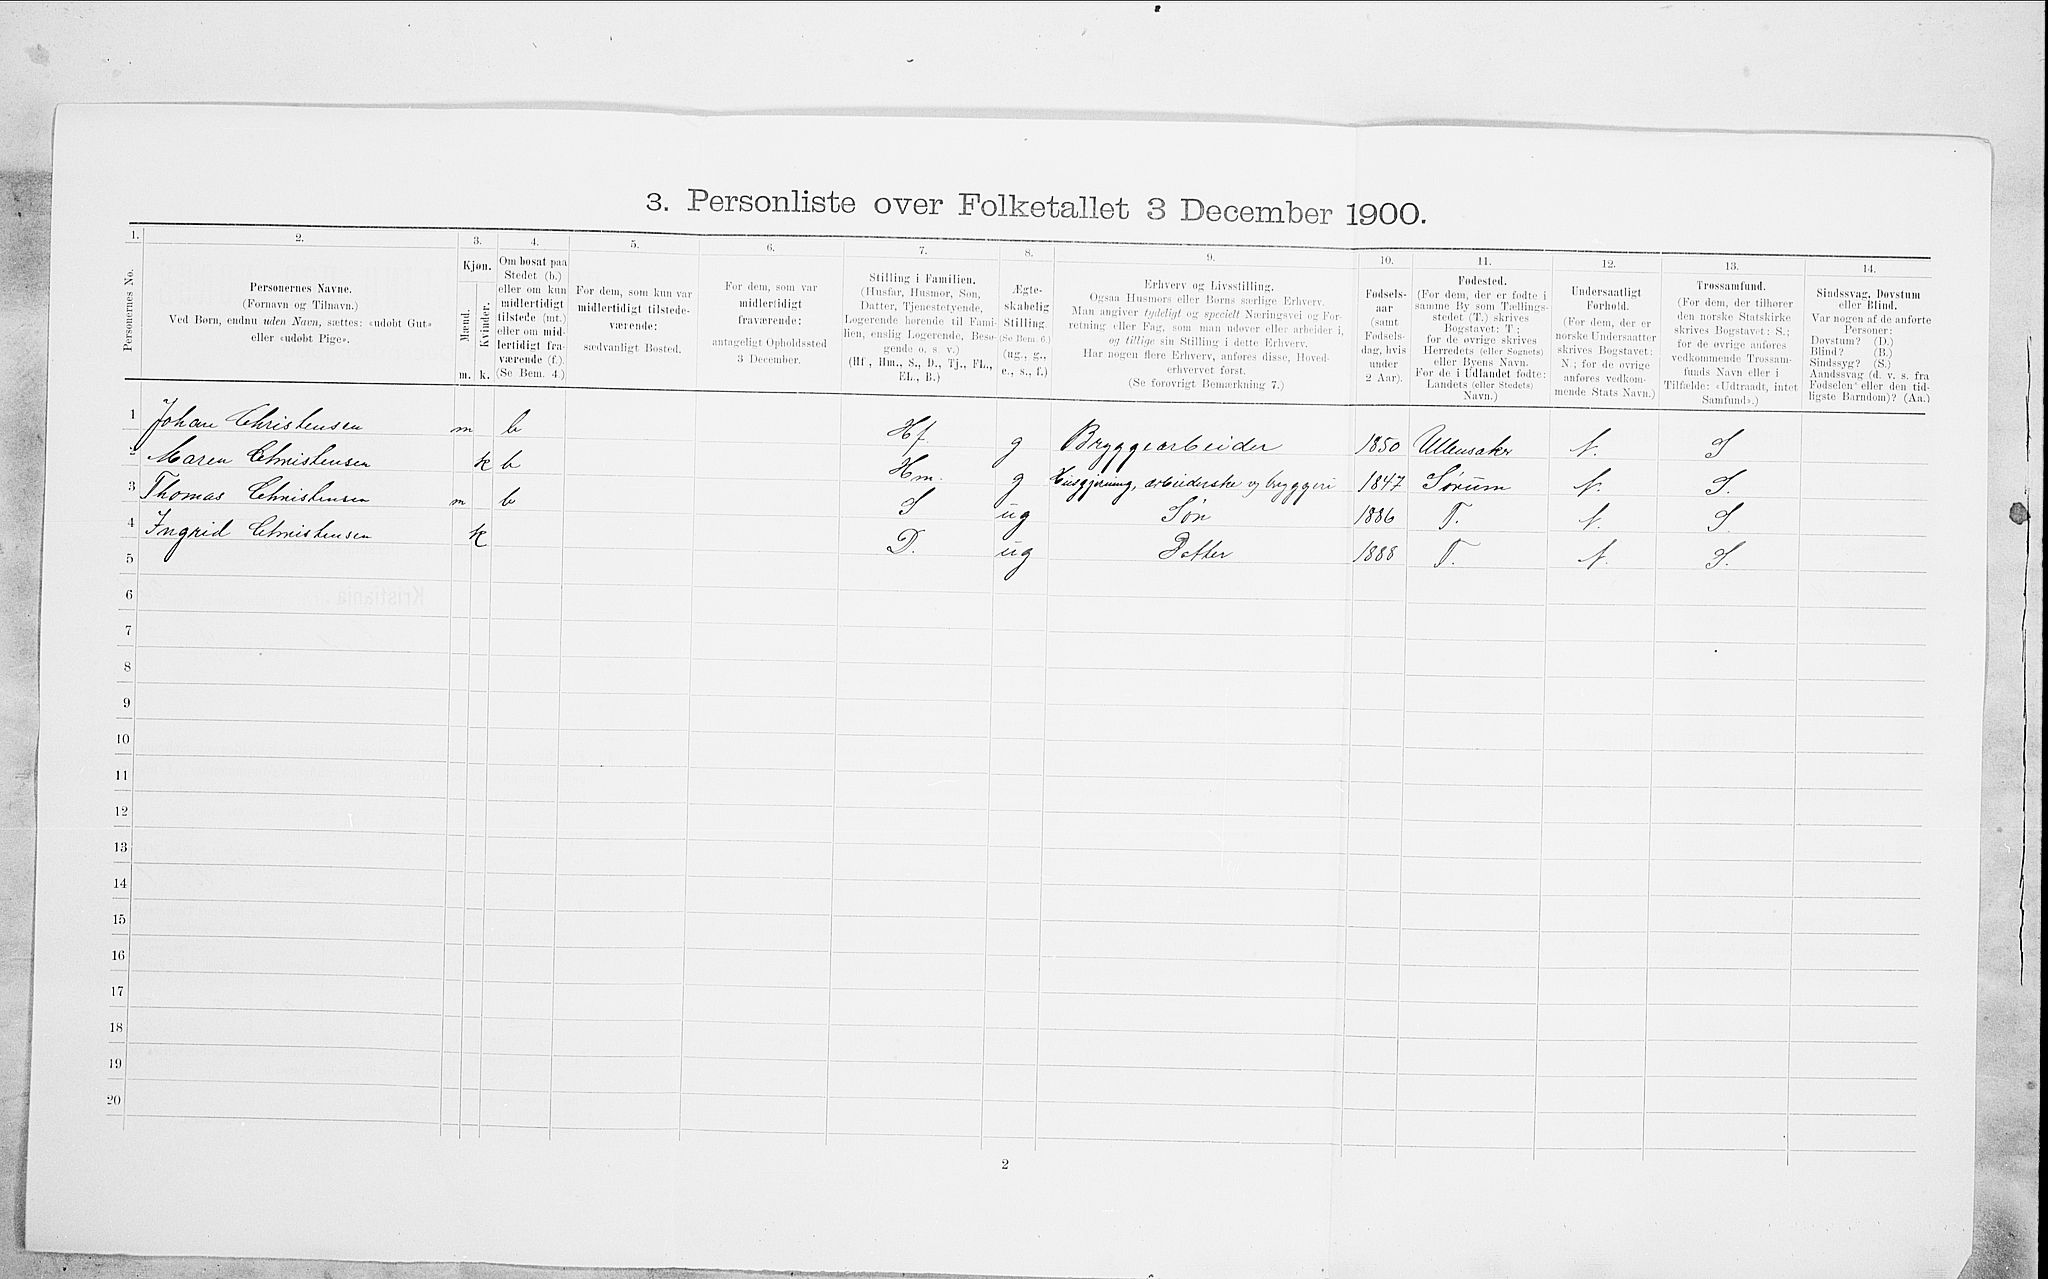 3. Personliste over Folketallet 3 December 1900.
1. 2. 3. 4. 5. 6. 7. 8. 9. 10. 11. 12. 13. 14.
Personernes No.
Personernes Navne.
(Fornavn og Tilnavn.)
Ved Børn, endnu uden Navn, sættes: «udøbt Gut»
eller «udøbt Pige».
Kjøn.
Mænd.
Kvinder.
m. k.
Om bosat paa
Stedet (b.)
eller om kun
midlertidigt
tilstede (mt.)
eller om mid-
lertidigt fra-
værende (f.).
(Se Bem. 4.)
For dem, som kun var
midlertidigt tilstede-
værende:
sædvanligt Bosted.
For dem, som var
midlertidigt
fraværende:
antageligt Opholdssted
3 December.
Stilling i Familien.
(Husfar, Husmor, Søn,
Datter, Tjenestetyende,
Logerende hørende til Fami-
lien, enslig Logerende, Besø-
gende o. s. v.)
(Hf., Hm., S., D., Tj., FL.,
EL., B.)
Ægte-
skabelig
Stilling.
(Se Bem. 6.)
(ug., g.,
e., s., f.)
Erhverv og Livsstilling.
Ogsaa Husmors eller Børns særlige Erhverv.
Man angiver tydeligt og specielt Næringsvei og For-
retning eller Fag, som man udøver eller arbeider i,
og tillige sin Stilling i dette Erhverv.
Har nogen flere Erhverv, anføres disse, Hoved-
erhvervet først.
(Se forøvrigt Bemærkning 7.)
Fødsels-
aar
(samt
Fødsels-
dag, hvis
under
2 Aar).
Fødested.
(For dem, der er fødte i
samme By som Tællings-
stedet (T.) skrives
Bogstavet: T;
for de øvrige skrives
Herredets (eller Sognets)
eller Byens Navn.
For de i Udlandet fødte:
Landets (eller Stedets)
Navn.)
Undersaatligt
Forhold.
(For dem, der er
norske Undersaatter
skrives Bogstavet:
N.; for de øvrige
anføres vedkom-
mende Stats Navn.)
Trossamfund.
(For dem, der tilhører
den norske Statskirke
skrives Bogstavet: S.;
for de øvrige anføres
vedkommende Trossam-
funds Navn eller i
Tilfælde: «Udtraadt, intet
Samfund».)
Sindssvag, Døvstum
eller Blind.
Var nogen af de anførte
Personer:
Døvstum? (D.)
Blind? (B.)
Sindssyg? (S.)
Aandssvag (d. v. s. fra
Fødselen eller den tid-
ligste Barndom)? (Aa.)
1 Johan Christensen m b Hf. g Bryggearbeider 1850 Ullensaker N. S
2 Maren Christensen k b Hm. g Husgjerning, arbeiderske og bryggeri 1847 Sørum N. S.
3 Thomas Christensen m b S ug Søn 1886 T. N. S
4 Ingrid Christensen k D. ug Datter 1888 T. N. S.
5
6
7
8
9
10
11
12
13
14
15
16
17
18
19
20
2